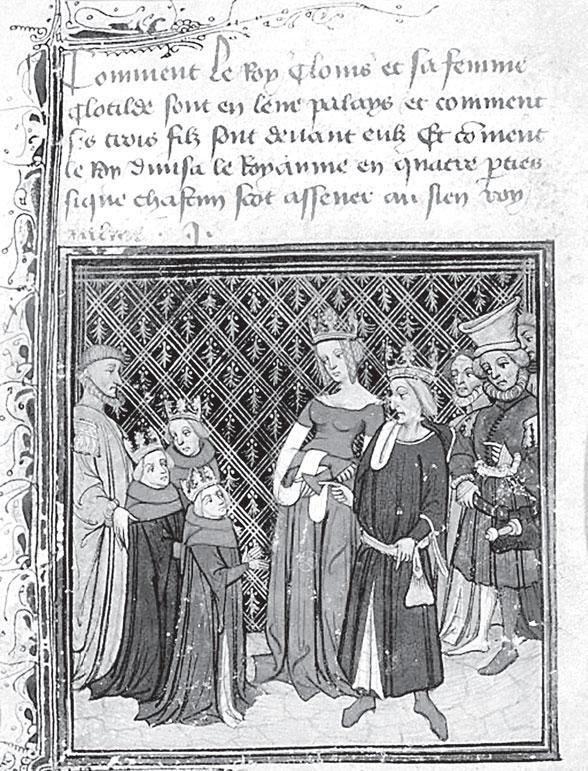 Comment le Roy Clouis et sa femme
Clotilde sont en leur palays et comment
ses trois filz sont deuant eulx Et coment
le Roy diuisa le Royaume en quatre pties
sique chascun scot assener au sien roy
aulme . J .